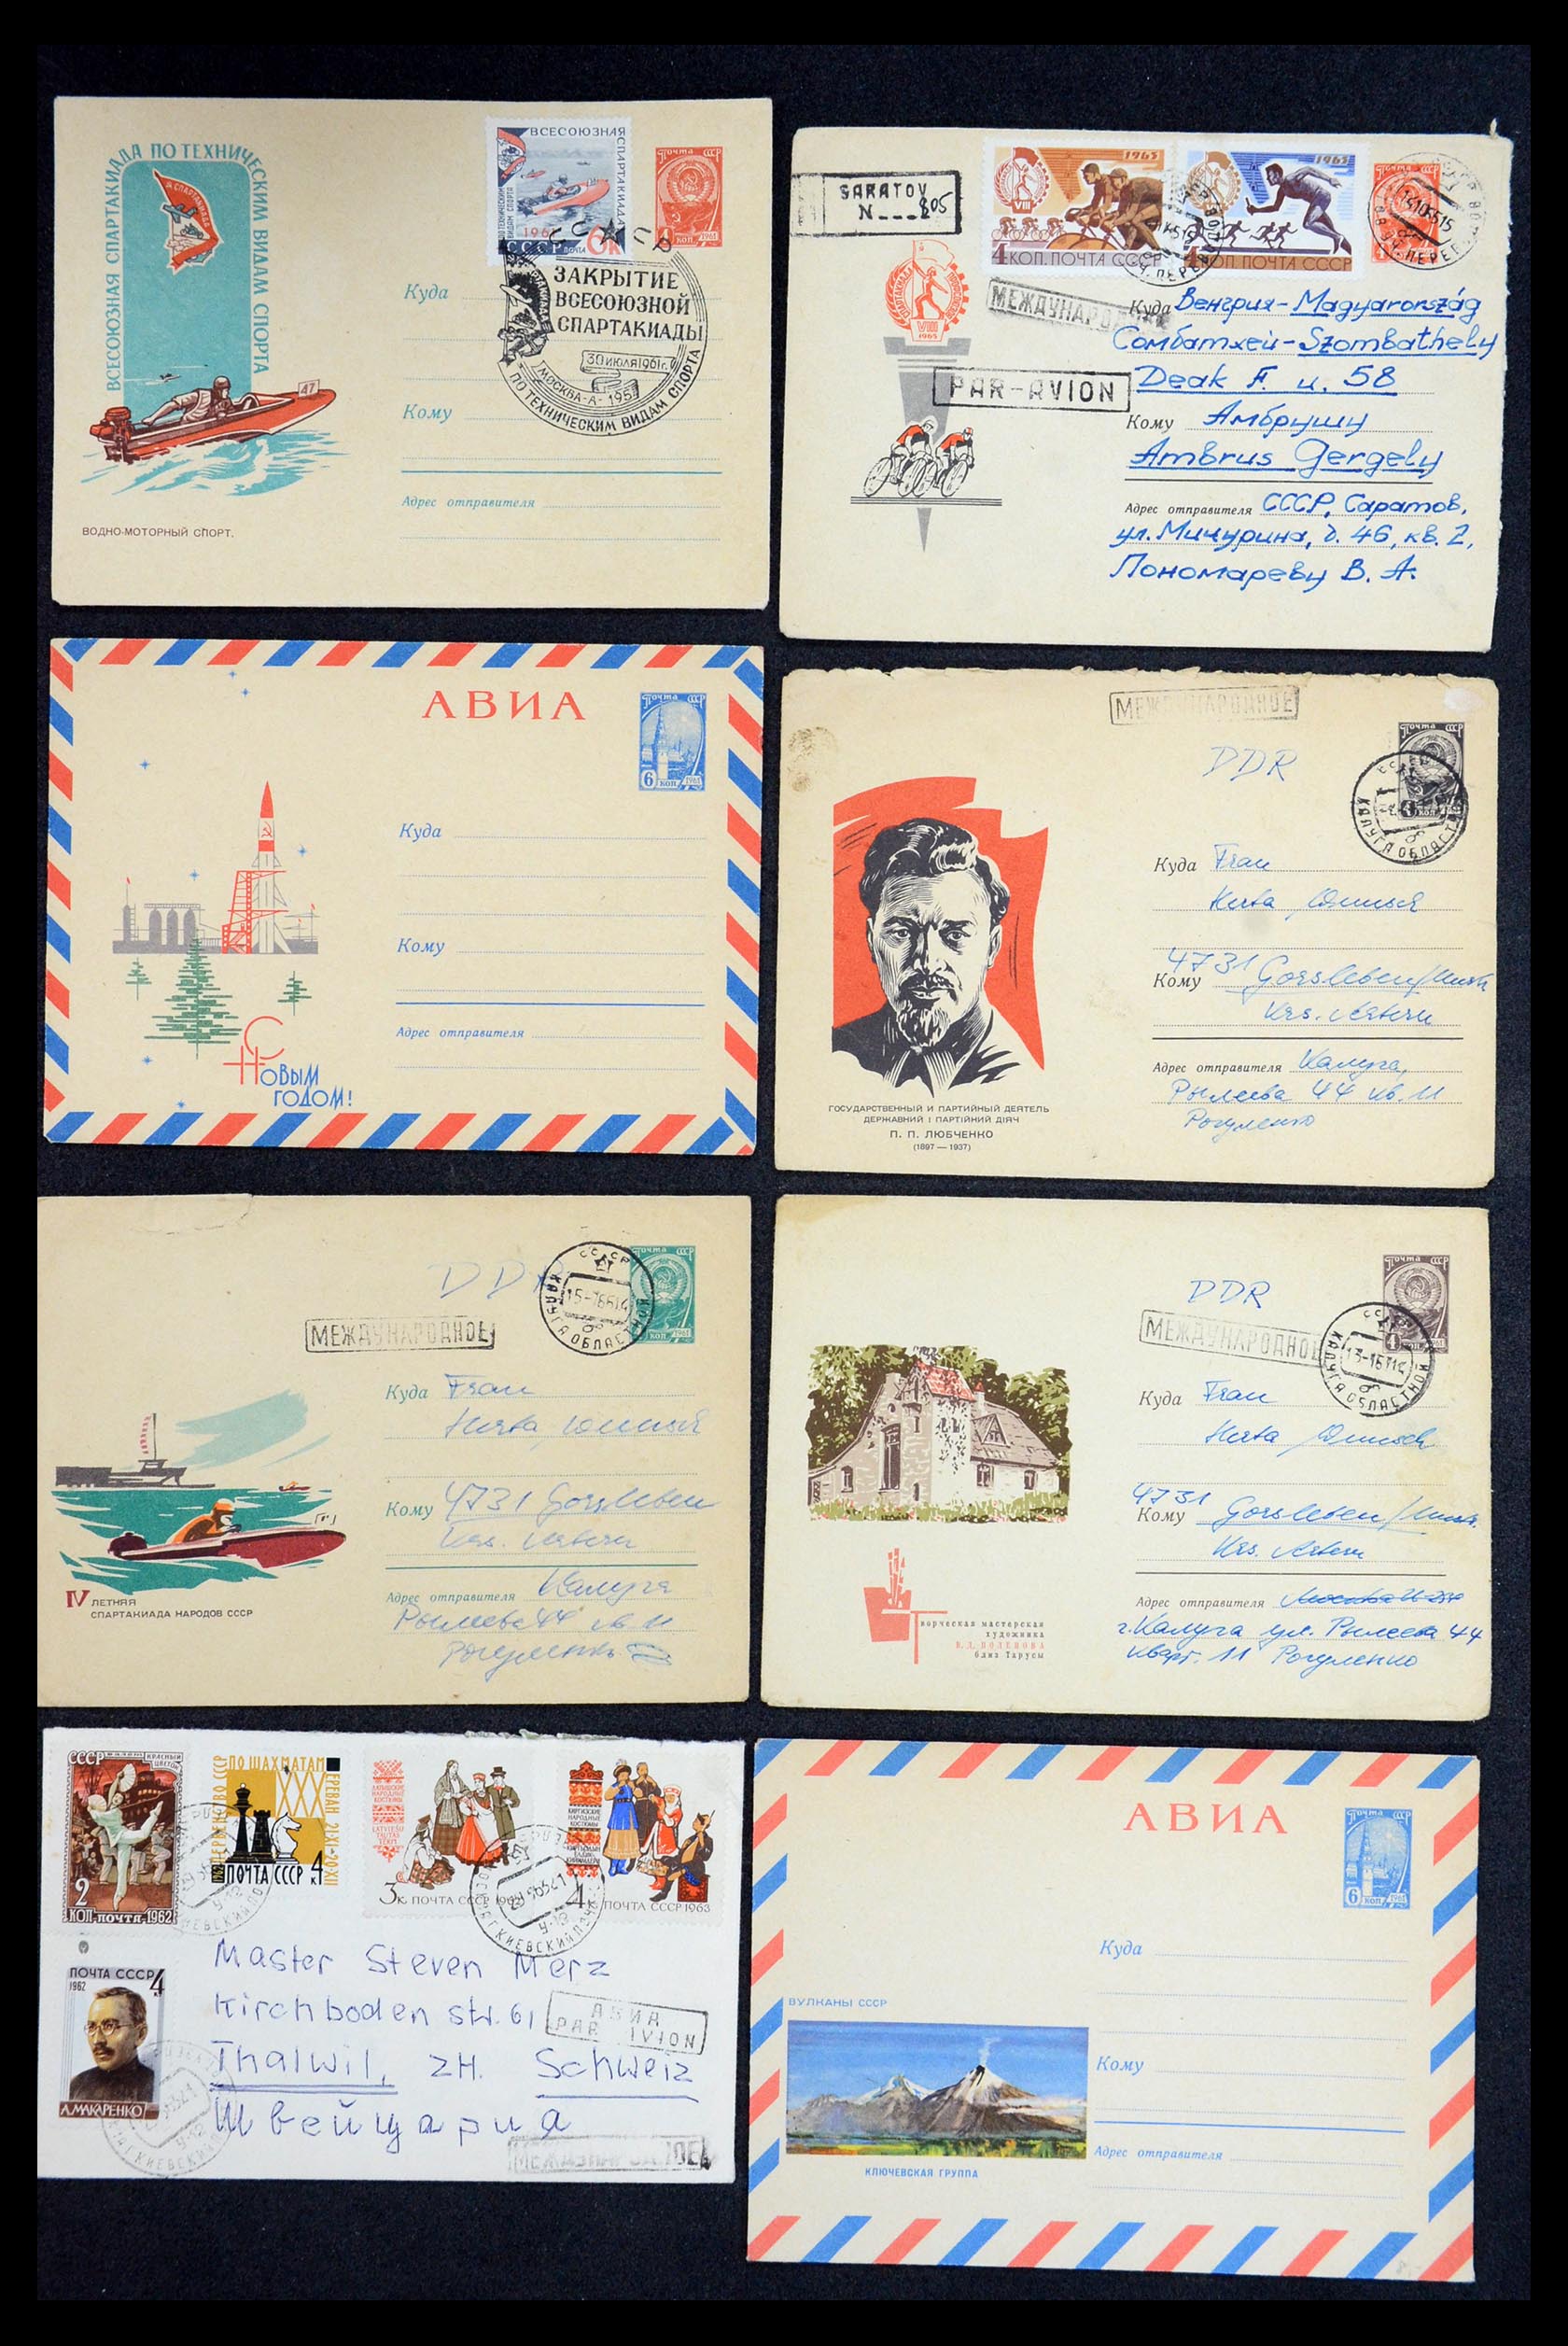 ВСЕСОЮЗНАЯ СПАРТАКИАДА ПО ТЕХНИЧЕСКИМ ВИДАМ СПОРТА
СПАРТАКИАДА
47
ВОДНО-МОТОРНЫЙ СПОРТ.
ВСЕСОЮЗНАЯ СПАРТАКИАДА
ПО ТЕХНИЧЕСКИМ ВИДАМ СПОРТА
СССР ПОЧТА 6к
Почта СССР
4 коп. 1961
ЗАКРЫТИЕ
ВСЕСОЮЗНОЙ
СПАРТАКИАДЫ
30 ИЮЛЯ 1961 г.
МОСКВА-А-195
ПО ТЕХНИЧЕСКИМ ВИДАМ СПОРТА
Куда
Кому
Адрес отправителя
SARATOV
N 805
VIII
1965
4 КОП. ПОЧТА СССР
1965
КОП. ПОЧТА СССР
VIII
1965
МЕЖДУНАРОДНОЕ
PAR-AVION
Куда Венгрия-Magyarország
Сомбатхей-Szombathely
Deak F. u. 58
Кому Амбрушу
Ambrus Gergely
Адрес отправителя СССР, Саратов,
ул. Мичурина, д. 46, кв. 2,
Пономареву В. А.
АВИА
Почта СССР
6 коп 1961
Куда
Кому
Адрес отправителя
С Новым
годом!
МЕЖДУНАРОДНОЕ
DDR
Почта СССР
КАЛУГА ОБЛАСТНОЙ
Куда Frau
Herta
4731 Gorsleben/
Кому
Krs. Artern
Адрес отправителя Калуга,
Рылеева 44 кв. 11
Рогуленко
ГОСУДАРСТВЕННЫЙ И ПАРТИЙНЫЙ ДЕЯТЕЛЬ
ДЕРЖАВНИЙ І ПАРТІЙНИЙ ДІЯЧ
П. П. ЛЮБЧЕНКО
(1897 — 1937)
DDR
Почта СССР
коп. 1961
КАЛУГА ОБЛАСТНОЙ
МЕЖДУНАРОДНОЕ
Куда Frau
Herta
Кому 4731 Gorsleben
Krs. Artern
Адрес отправителя Калуга
Рылеева 44 кв 11
Рогуленко
IV ЛЕТНЯЯ
СПАРТАКИАДА НАРОДОВ СССР
DDR
Почта СССР
4
МЕЖДУНАРОДНОЕ
КАЛУГА ОБЛАСТНОЙ
Куда Frau
Herta
4731
Кому Gorsleben/
Krs. Artern
Адрес отправителя
г. Калуга ул. Рылеева 44
кварт. 11 Рогуленко
Творческая мастерская
художника
В.Д. ПОЛЕНОВА
близ Тарусы
СССР БАЛЕТ КРАСНЫЙ ЦВЕТОК
2
КОП·ПОЧТА-1962
ПЕРВЕНСТВО СССР ПО ШАХМАТАМ
ЕРЕВАН 21·XI-20·XII
ПОЧТА СССР 4 к
ЛАТЫШСКИЕ
НАРОДНЫЕ
КОСТЮМЫ
LATVIEŠU
TAUTAS
TĒRPI
3к. ПОЧТА СССР
КИРГИЗСКИЕ
НАРОДНЫЕ
КОСТЮМЫ
4к ПОЧТА СССР 1963
ПОЧТА СССР 4
1962
А.МАКАРЕНКО
Master Steven Merz
Kirchboden str. 61
Thalwil, ZH. Schweiz
Швейцария
АВИА
PAR AVION
МЕЖДУНАРОДНОЕ
АВИА
Почта СССР
6 коп 1961
Куда
Кому
Адрес отправителя
ВУЛКАНЫ СССР
КЛЮЧЕВСКАЯ ГРУППА